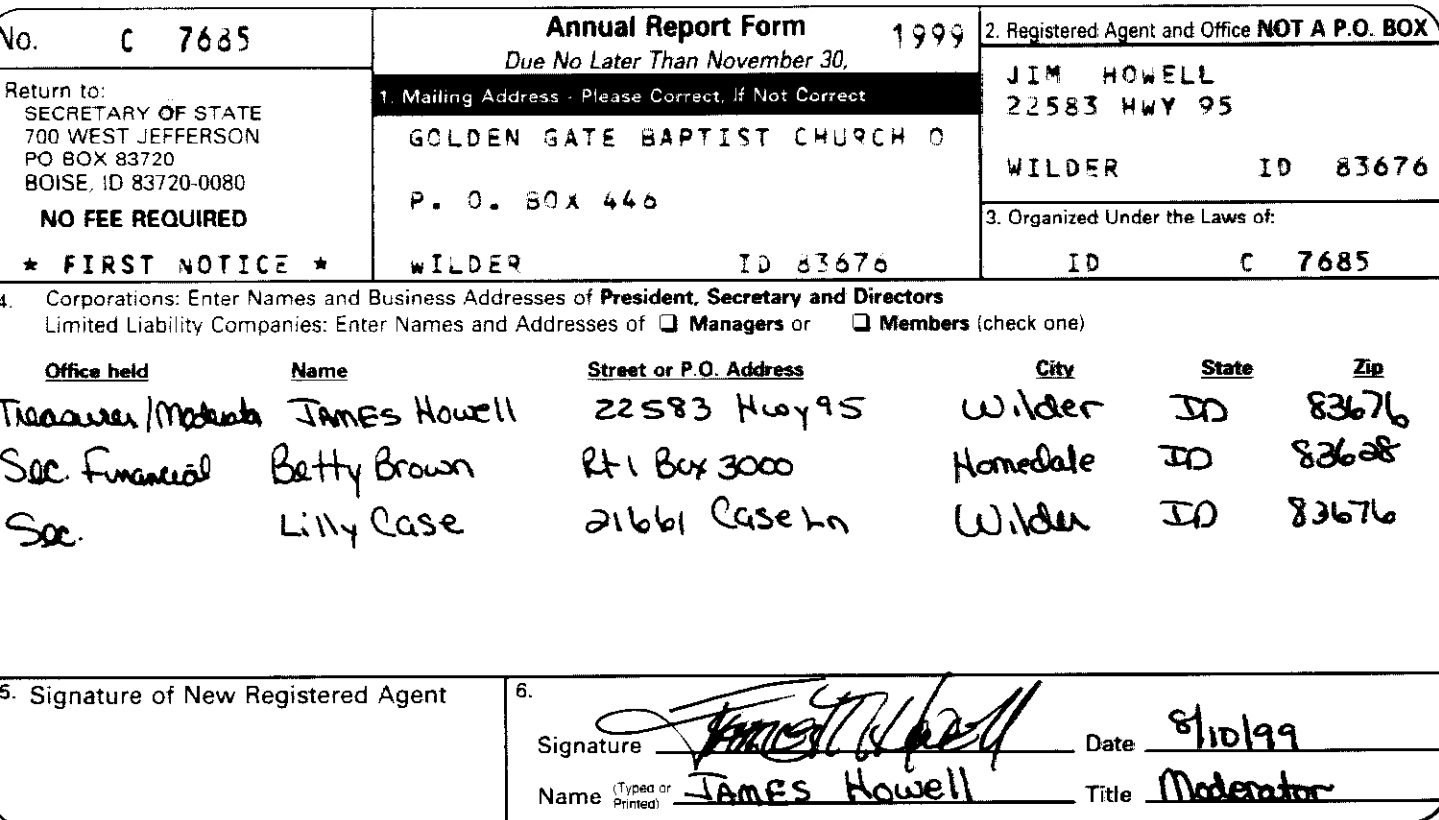 No. C 7685
Annual Report Form 1999
Due No Later Than November 30,
Return to:
SECRETARY OF STATE
700 WEST JEFFERSON
PO BOX 83720
BOISE, ID 83720-0080
NO FEE REQUIRED
* FIRST NOTICE *
1. Mailing Address - Please Correct, If Not Correct
GOLDEN GATE BAPTIST CHURCH O
P. O. BOX 446
WILDER ID 83676
2. Registered Agent and Office NOT A P.O. BOX
JIM HOWELL
22583 HWY 95
WILDER ID 83676
3. Organized Under the Laws of:
ID C 7685
4. Corporations: Enter Names and Business Addresses of President, Secretary and Directors
Limited Liability Companies: Enter Names and Addresses of ❑ Managers or ❑ Members (check one)
Office held Name Street or P.O. Address City State Zip
Treasurer/Moderator JAMES Howell 22583 Hwy 95 Wilder ID 83676
Sec. Financial Betty Brown Rt 1 Box 3000 Homedale ID 83628
Sec. Lilly Case 21661 Case Ln Wilder ID 83676
5. Signature of New Registered Agent
6.
Signature James Howell Date 8/10/99
Name (Typed or Printed) JAMES Howell Title Moderator